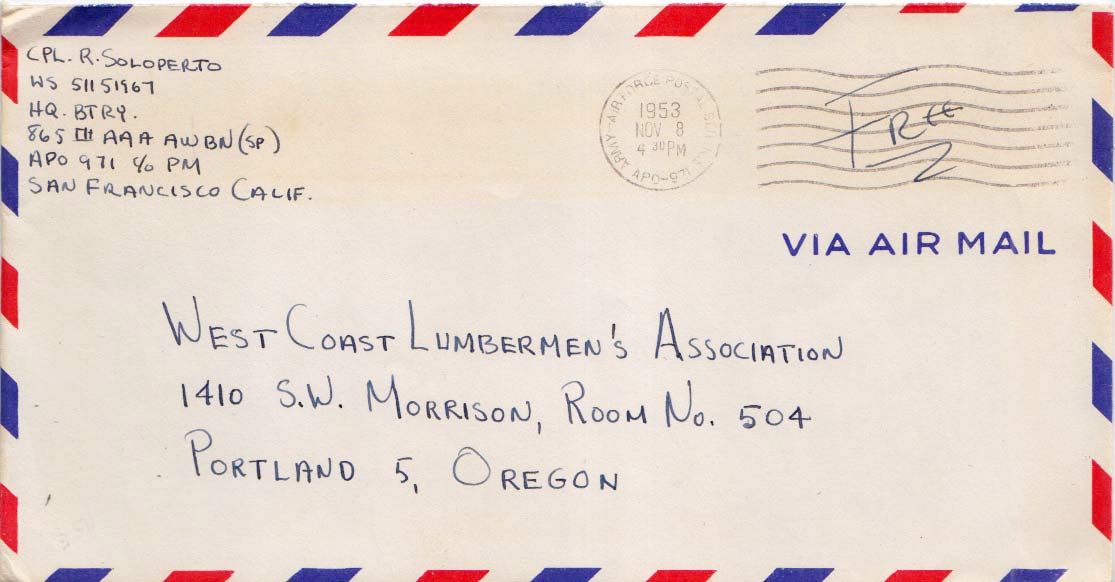 CPL. R. SOLOPERTO
WS 51151967
HQ. BTRY.
865TH AAA AWBN (SP)
APO 971 c/o PM
SAN FRANCISCO CALIF.
ARMY-AIR FORCE POSTAL SERVICE
1953
NOV 8
4 30 PM
APO-971
FREE
VIA AIR MAIL
WEST COAST LUMBERMEN'S ASSOCIATION
1410 S.W. MORRISON, ROOM NO. 504
PORTLAND 5, OREGON